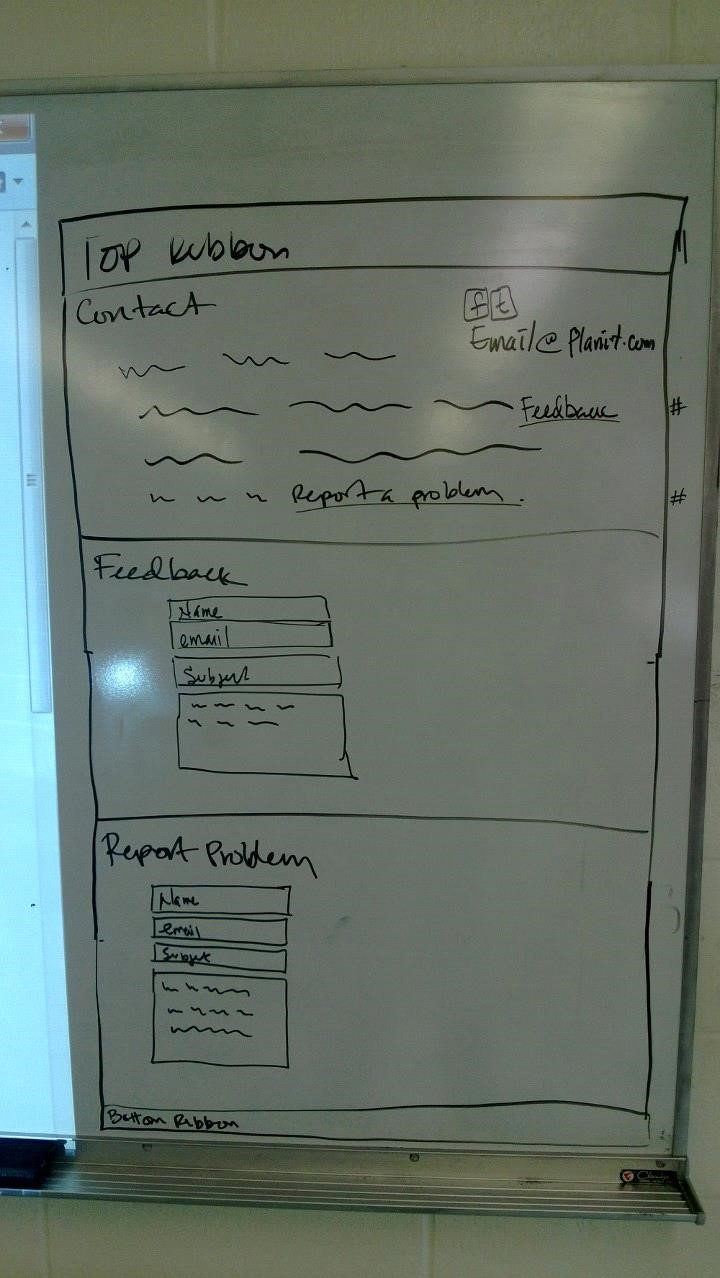 Top Ribbon
Contact
f t
Email@planit.com
Feedback #
Report a problem. #
Feedback
Name
email
Subject
Report Problem
Name
email
Subject
Bottom Ribbon